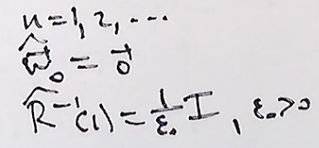 n=1,2,...
ŵ₀ = 0⃗
R̂⁻¹(1) = 1/ε₀ I, ε₀>0